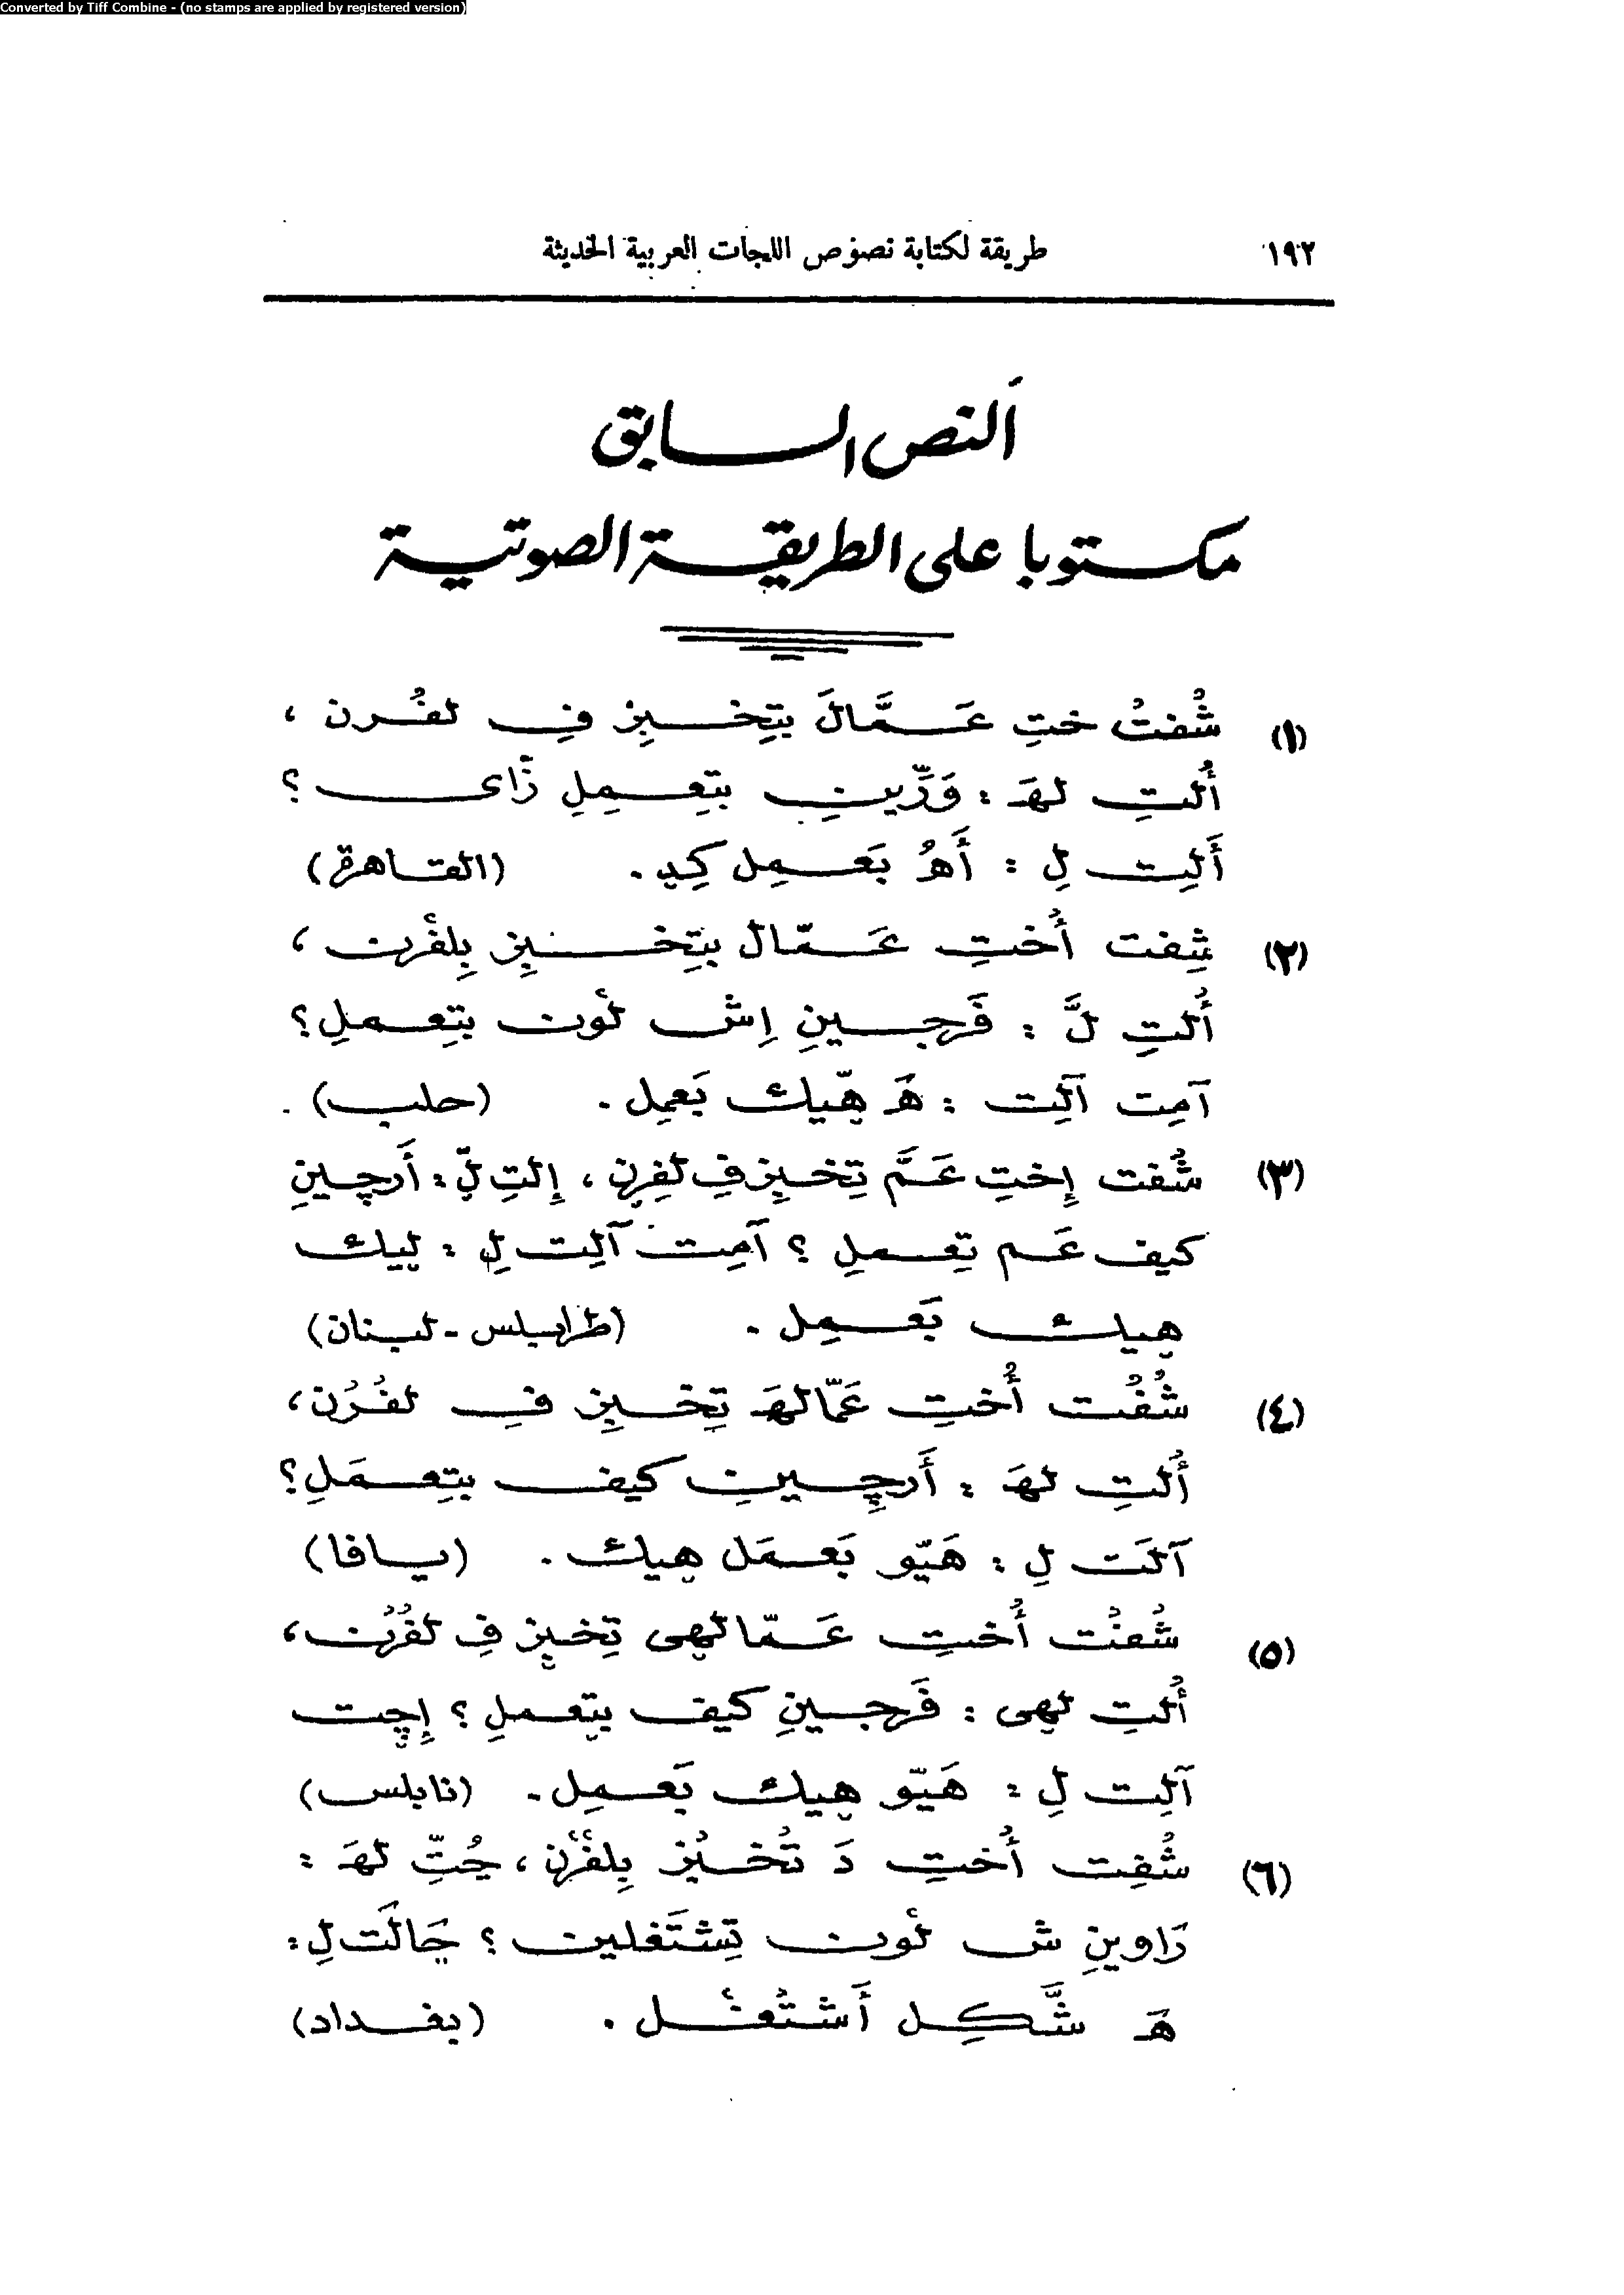 Converted by Tiff Combine - (no stamps are applied by registered version)
١٩٢ طريقة لكتابة نصوص اللهجات العربية الحديثة
النص السابق
مكتوبا على الطريقة الصوتية
(١) شُفتُ ختِ عَمَّالَ بتِخبِز فِ لفُرن ،
أُلتِ لهَ : وَرِّينِ بتِعمِلِ زَّاى ؟
أَلِت لِ : أَهُ بَعمِل كِدِ . (القاهرة)
(٢) شِفت أُختِ عَمّال بتِخبِز بِلفرن ،
أُلتِ لَّ : فَرجينِ اِش لون بتِعملِ ؟
آمِت آلِت : هَ هّيك بَعمِل . (حلب) .
(٣) شُفت إِختِ عَمَّ تِخبِز فِ لفِرن ، إِلتِ لّ : أَرچينِ
كيف عَم تِعملِ ؟ آمِت آلِت لِ : ليك
هيك بَعمِل . (طرابلس - لبنان)
(٤) شُفُت أُختِ عَمّالهَ تِخبِز فِ لفُرُن ،
أُلتِ لهَ : أَرچينِ كيف بتِعمَلِ ؟
آلَت لِ : هَيّو بَعمَل هيك . (يافا)
(٥) شُفُت أُختِ عَمّالهى تِخبز فِ لفُرُن ،
أُلتِ لهى : فَرجينِ كيف بتعملِ ؟ إِچت
آلِت لِ : هَيّو هيك بَعمِل . (نابلس)
(٦) شُفِت أُختِ دَ تُخبُز بِلفرن ، جُتِّ لهَ :
رَاوينِ ش لون تِشتَغلين ؟ جَالَت لِ :
هَ شَّكِل أَشتُغل . (بغداد)